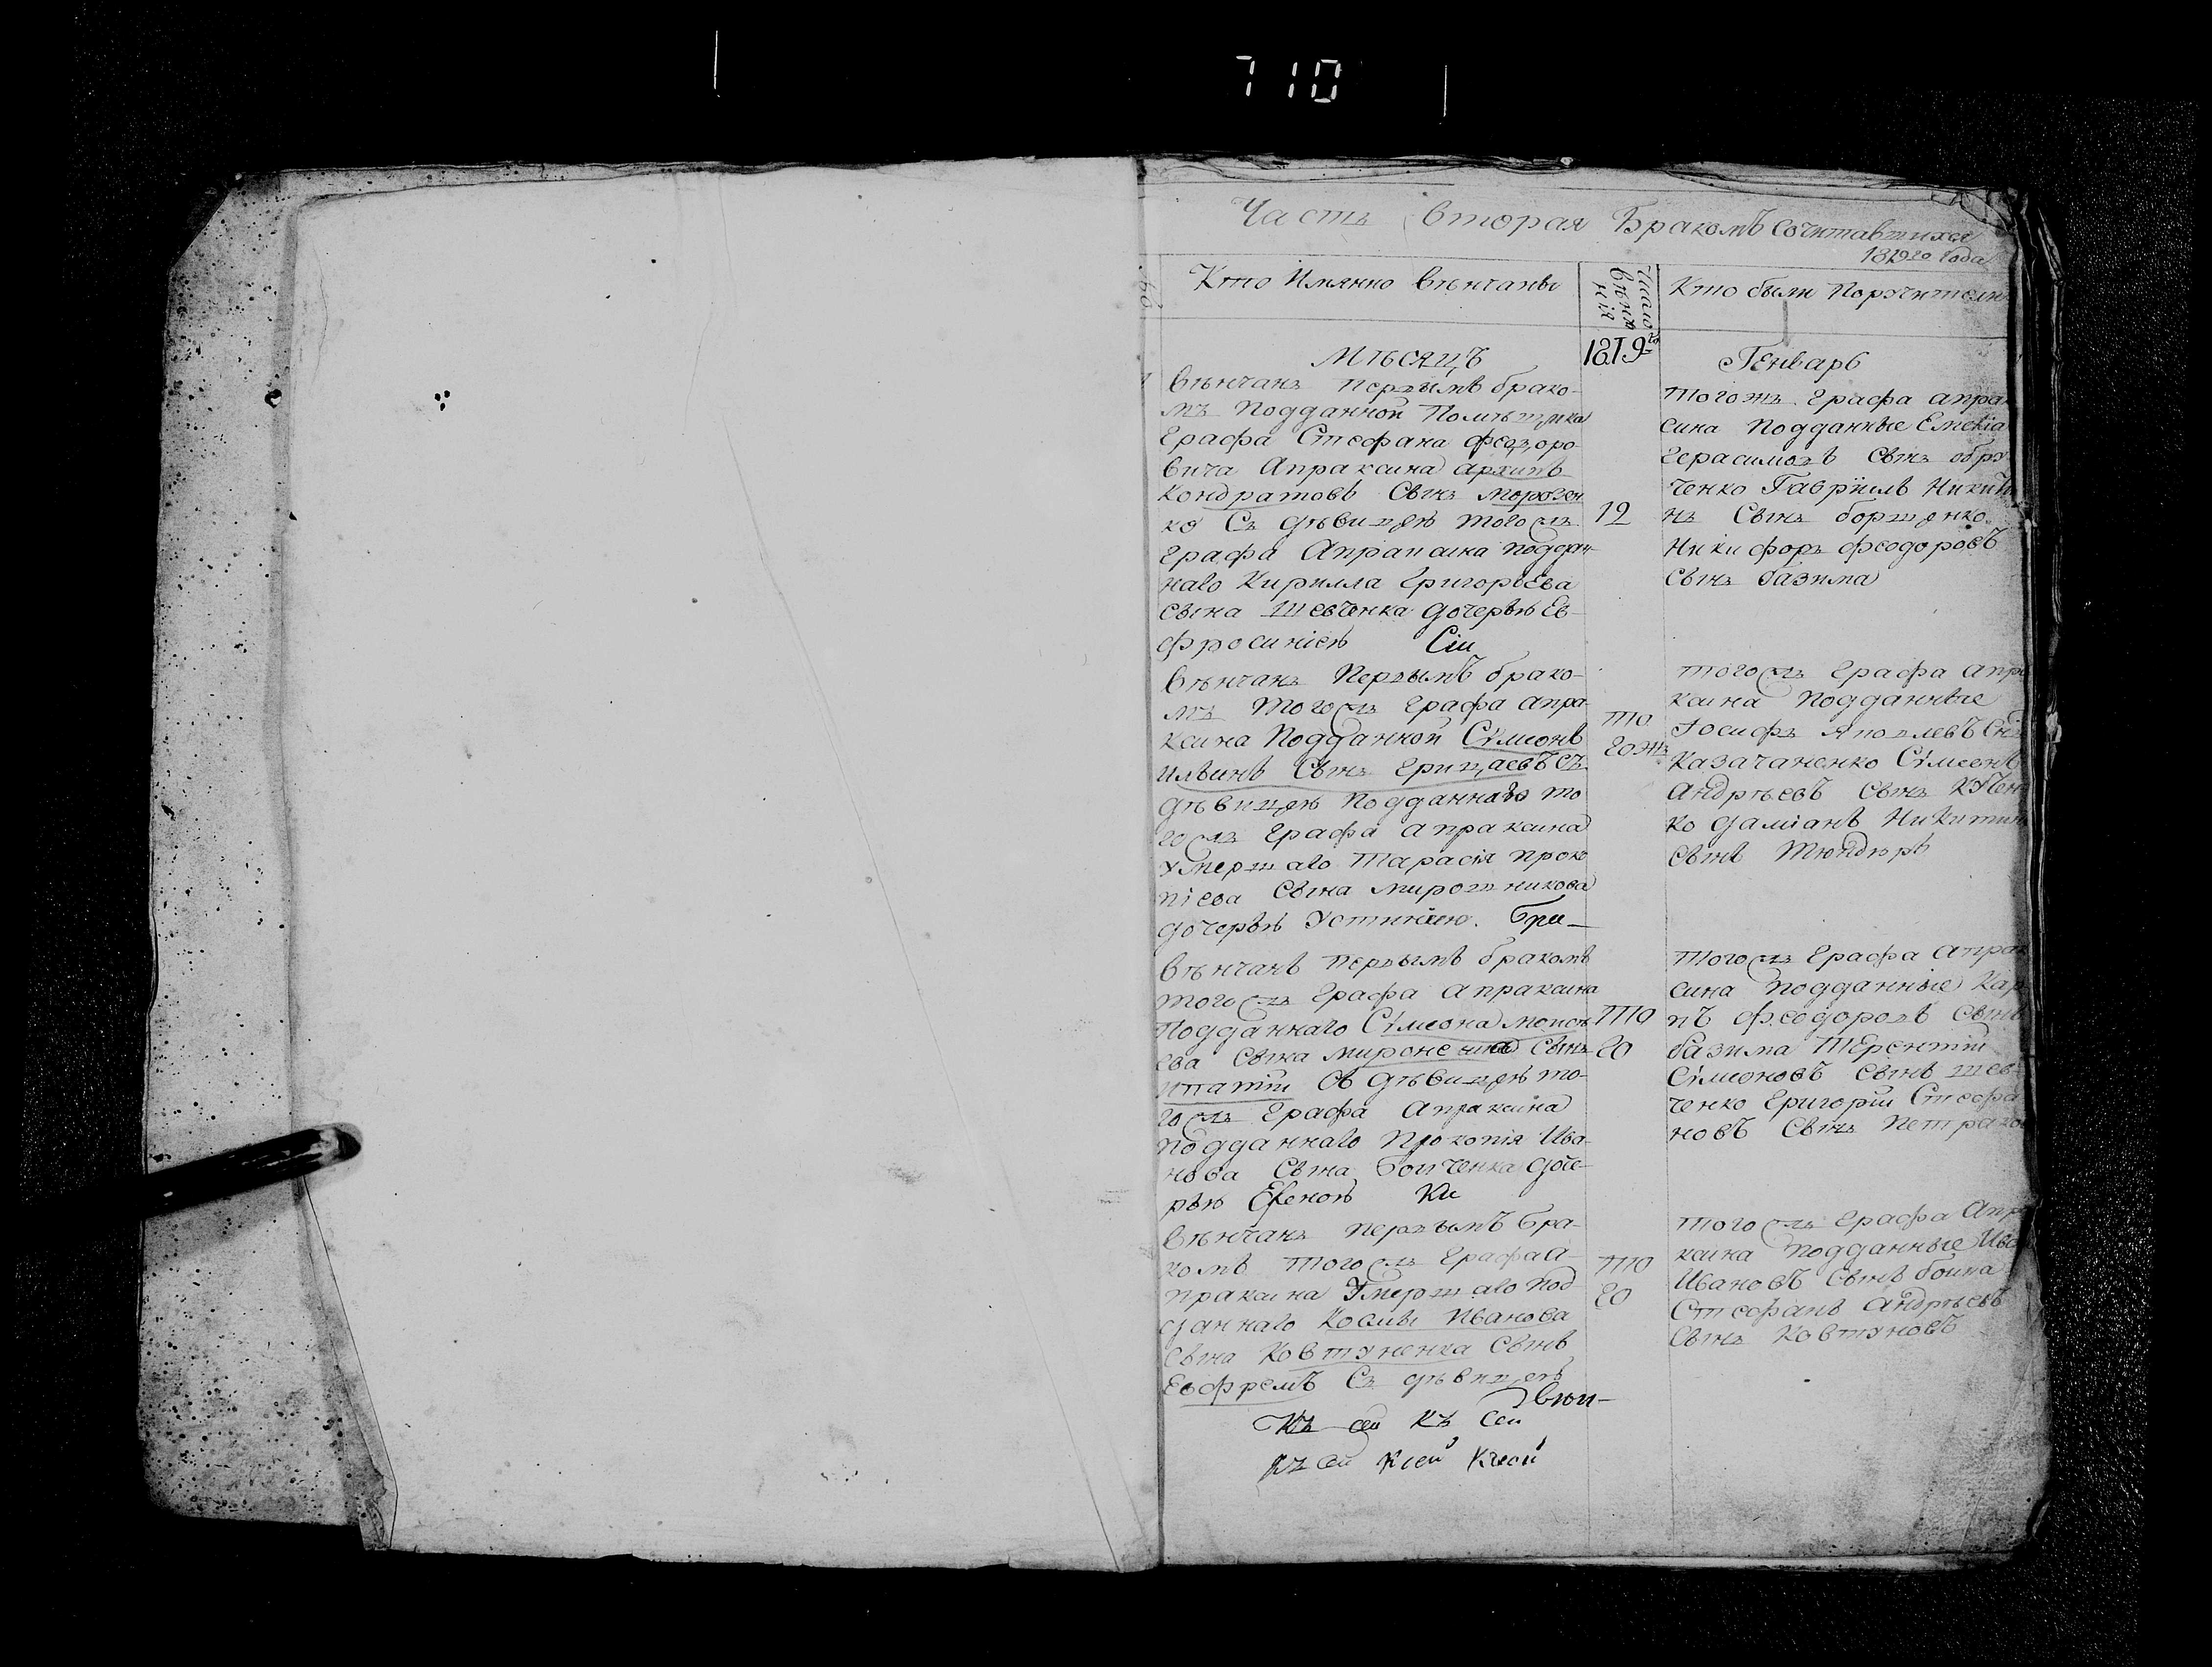 710
Часть вторая Бракомъ Сочитавшихся
18 года
Кто Имянно венчаны
Число венчания
Кто были Поручители
Мѣсяцъ
1819
Генварь
вѣнчанъ первымъ брако-
мъ Подданной Помѣщика
Графа Стефана Федоро
вича Апраксина архипъ
Кондратовъ Сынъ
ко Съ дѣвицею тогожъ
Графа Апраксина поддан-
наго Кирилла Григорьева
сына Шевченка дочерью Ев-
фросиніею Сіи
12
тогожъ Графа апрак
сина Подданные
Герасимовъ Сынъ
ченко Гавріилъ Никити
нъ Сынъ борщенко
Никифоръ Феодоровъ
Сынъ базима
вѣнчанъ Первымъ брако-
мъ тогожъ Графа апра-
ксина Подданной Сѵмеонъ
Ильинъ Сынъ Грицаевъ съ
дѣвицею Подданнаго то
гожъ Графа апраксина
умершаго Тарасія проко
піева Сына мирошникова
дочерью Устиніею.
то
гожъ
тогожъ Графа апра
ксина Подданные
Іосифъ Сынъ
Казачаненко Сѵмеонъ
андрѣевъ Сынъ
ко даміанъ Никитин
сынъ
вѣнчанъ первымъ бракомъ
тогожъ Графа апраксина
Подданнаго Сѵмеона
ева Сына Сынъ
ипатій Съ дѣвицею то-
гожъ Графа Апраксина
подданнаго Прокопія Ива-
нова Сына Бойченка доче-
рью Еленою
то
го
тогожъ Графа апрак
сина подданные Кар
пъ феодоровъ Сынъ
базима Терентій
Сѵмеоновъ Сынъ шев-
ченко Григорій Стефа
новъ Сынъ
Вѣнчанъ первымъ бра-
комъ тогожъ Графа а-
праксина умершаго под
даннаго Космы Иванова
сына Ковтуненка Сынъ
Евфремъ Съ дѣвицею
то
го
тогожъ Графа Апра
ксина подданные Ива
Ивановъ Сынъ бойка
Стефанъ андрѣевъ
Сынъ Ковтуновъ
Къ сей Къ Сей
Къ сей Ксей Къ сей